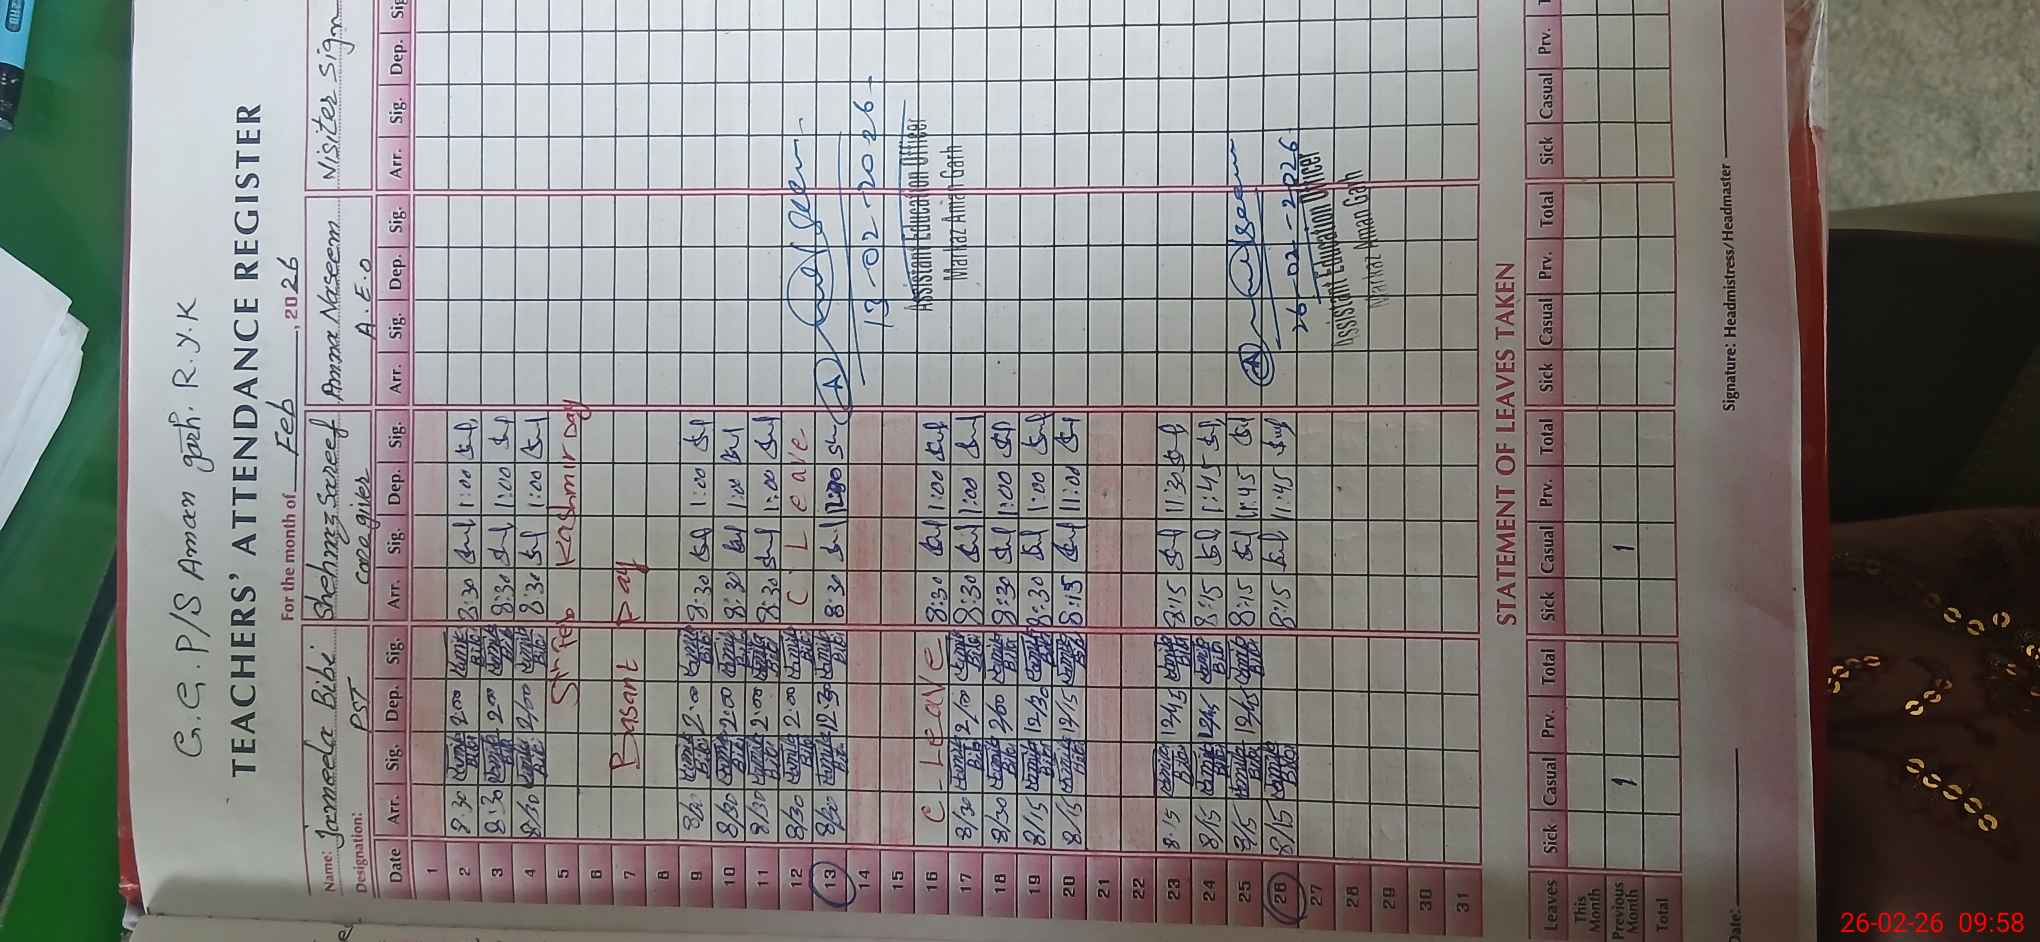 G.G.P/S Aman garh. R.Y.K
TEACHERS' ATTENDANCE REGISTER
For the month of Feb, 2026
Name: Jameela Bibi Shehnaz Sareef Amna Naseem Nisiter Sign
Designation: PST caregiver A.E.O
Date Arr. Sig. Dep. Sig. Arr. Sig. Dep. Sig. Arr. Sig. Dep. Sig. Arr. Sig. Dep. Sig
1
2 8:30 Jamila Bibi 2:00 Jamila Bibi 8:30 1:00
3 8:30 Jamila Bibi 2:00 Jamila Bibi 8:30 1:00
4 8/30 Jamila Bibi 2/00 Jamila Bibi 8:30 1:00
5 5th Feb Kashmir Day
6
7 Basant Day
8
9 8/30 Jamila Bibi 2:00 Jamila Bibi 8:30 1:00
10 8/30 Jamila Bibi 2:00 Jamila Bibi 8:30 1:00
11 8/30 Jamila Bibi 2:00 Jamila Bibi 8:30 1:00
12 8/30 Jamila Bibi 2:00 Jamila Bibi C Leave
13 8/30 Jamila Bibi 12:30 Jamila Bibi 8:30 12:00
13-02-2026
14
15
Assistant Education Officer
Markaz Aman Garh
16 C-Leave 8:30 1:00
17 8/30 Jamila Bibi 2/00 Jamila Bibi 8:30 1:00
18 8/30 Jamila Bibi 2/00 Jamila Bibi 8:30 1:00
19 8/15 Jamila Bibi 12/30 Jamila Bibi 8:30 1:00
20 8/15 Jamila Bibi 12/15 Jamila Bibi 8:15 11:00
21
22
23 8:15 Jamila Bibi 12/45 Jamila Bibi 8:15 11:30
24 8/15 Jamila Bibi 12/45 Jamila Bibi 8:15 1:45
25 8/15 Jamila Bibi 12/45 Jamila Bibi 8:15 11:45
26 8/15 Jamila Bibi 8:15 11:45
26-02-2026
27
Assistant Education Officer
28
Markaz Aman Garh
29
30
31
STATEMENT OF LEAVES TAKEN
Leaves Sick Casual Prv. Total Sick Casual Prv. Total Sick Casual Prv. Total Sick Casual Prv.
This Month
Previous Month 1 1
Total
Date: Signature: Headmistress/Headmaster
26-02-26 09:58